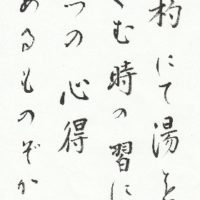 杓にて湯を
くむ時の習に
つの心得
あるものぞか